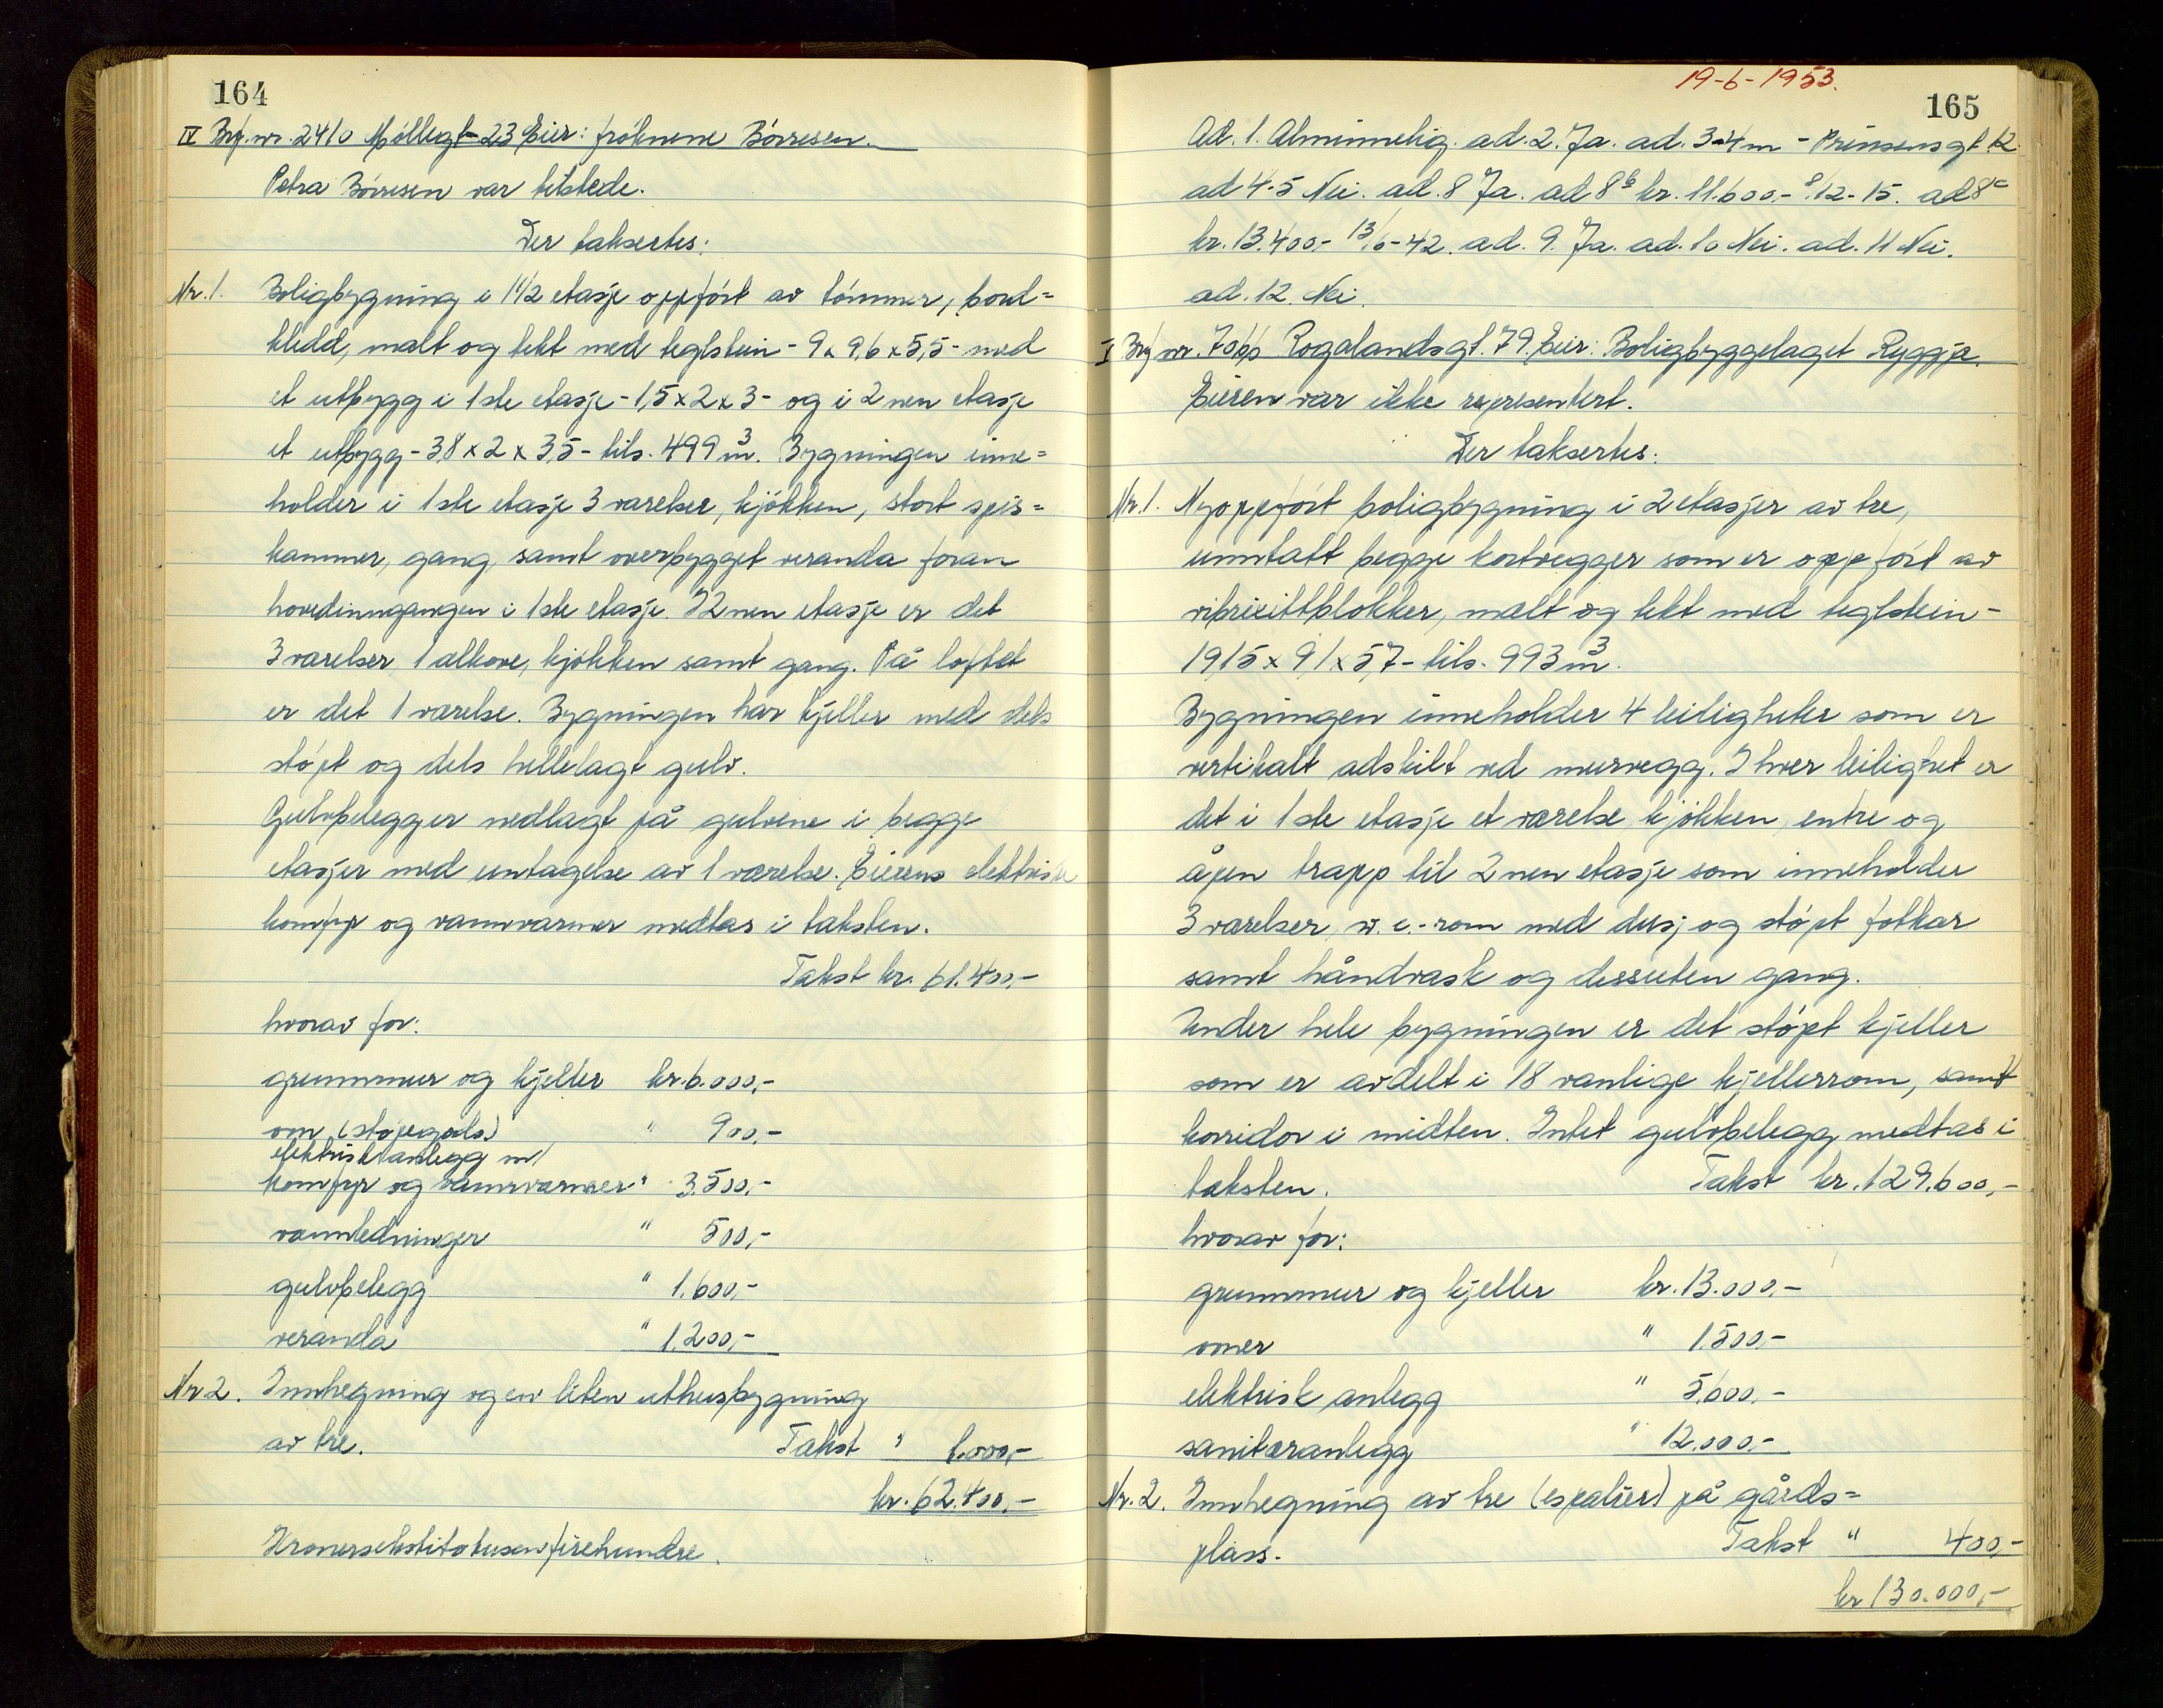 164
IV Brf.nr. 2410 Møllegt-23 Eier: frøknene Børresen.
Petra Børresen var tilstede.
Der taksertes:
Nr. 1. Boligbygning i 1 1/2 etasje oppført av tømmer, bord=
kledd, malt og tekt med teglstein - 9 x 9,6 x 5,5 - med
et utbygg i 1ste etasje - 1,5 x 2 x 3 - og i 2nen etasje
et utbygg - 3,8 x 2 x 3,5 - tils. 499 m³. Bygningen inne=
holder i 1ste etasje 3 værelser, kjøkken, stort spis=
kammer, gang, samt overbygget veranda foran
hovedinngangen i 1ste etasje. I 2nen etasje er det
3 værelser, 1 alkove, kjøkken samt gang. På loftet
er det 1 værelse. Bygningen har kjeller med dels
støpt og dels hellelagt gulv.
Gulvbelegger nedlagt på gulvene i begge
etasjer med untagelse av 1 værelse. Eierens elektriske
komfyr og vannvarmer medtas i taksten.
Takst kr. 61.400,-
hvorav for:
grunnmur og kjeller kr. 6.000,-
ovn (støpegods) " 900,-
elektrisk anlegg m/
komfyr og vannvarmer " 3.500,-
vannledninger " 500,-
gulvbelegg " 1.600,-
veranda " 1.200,-
Nr 2. Innhegning og en liten uthusbygning
av tre. Takst " 1.000,-
kr. 62.400,-
Kronersekstitotusenfirehundre.
19-6-1953.
165
Ad. 1. Alminnelig. ad. 2. Ja. ad. 3-4 m - Prinsensgt. 12.
ad 4-5 Nei. ad. 8 Ja. ad 8b kr. 11.600,- 8/12-15. ad 8c
kr. 13.400,- 13/6-42. ad. 9. Ja. ad. 10 Nei. ad. 11 Nei.
ad. 12. Nei.
I Brf nr. Rogalandsgt. 79. Eier: Boligbyggelaget Ryggja.
Eieren var ikke representert.
Der taksertes:
Nr. 1. Nyoppført boligbygning i 2 etasjer av tre,
unntatt begge kortvegger som er oppført av
vibrixittblokker, malt og tekt med teglstein -
19,15 x 9,1 x 5,7 - tils. 993 m³.
Bygningen inneholder 4 leiligheter som er
vertikalt adskilt ved murvegg. I hver leilighet er
det i 1ste etasje et værelse, kjøkken, entre og
åpen trapp til 2nen etasje som inneholder
3 værelser, w.c.-rom med dusj og støpt fotkar
samt håndvask og dessuten gang.
Under hele bygningen er det støpt kjeller
som er avdelt i 18 vanlige kjellerrom, samt
korridor i midten. Intet gulvbelegg medtas i
taksten. Takst kr. 129.600,-
hvorav for:
grunnmur og kjeller kr. 13.000,-
ovner " 1.500,-
elektrisk anlegg " 5.600,-
sanitæranlegg " 12.000,-
Nr. 2. Innhegning av tre (espalier) på gårds=
plass. Takst " 400,-
kr 130.000,-